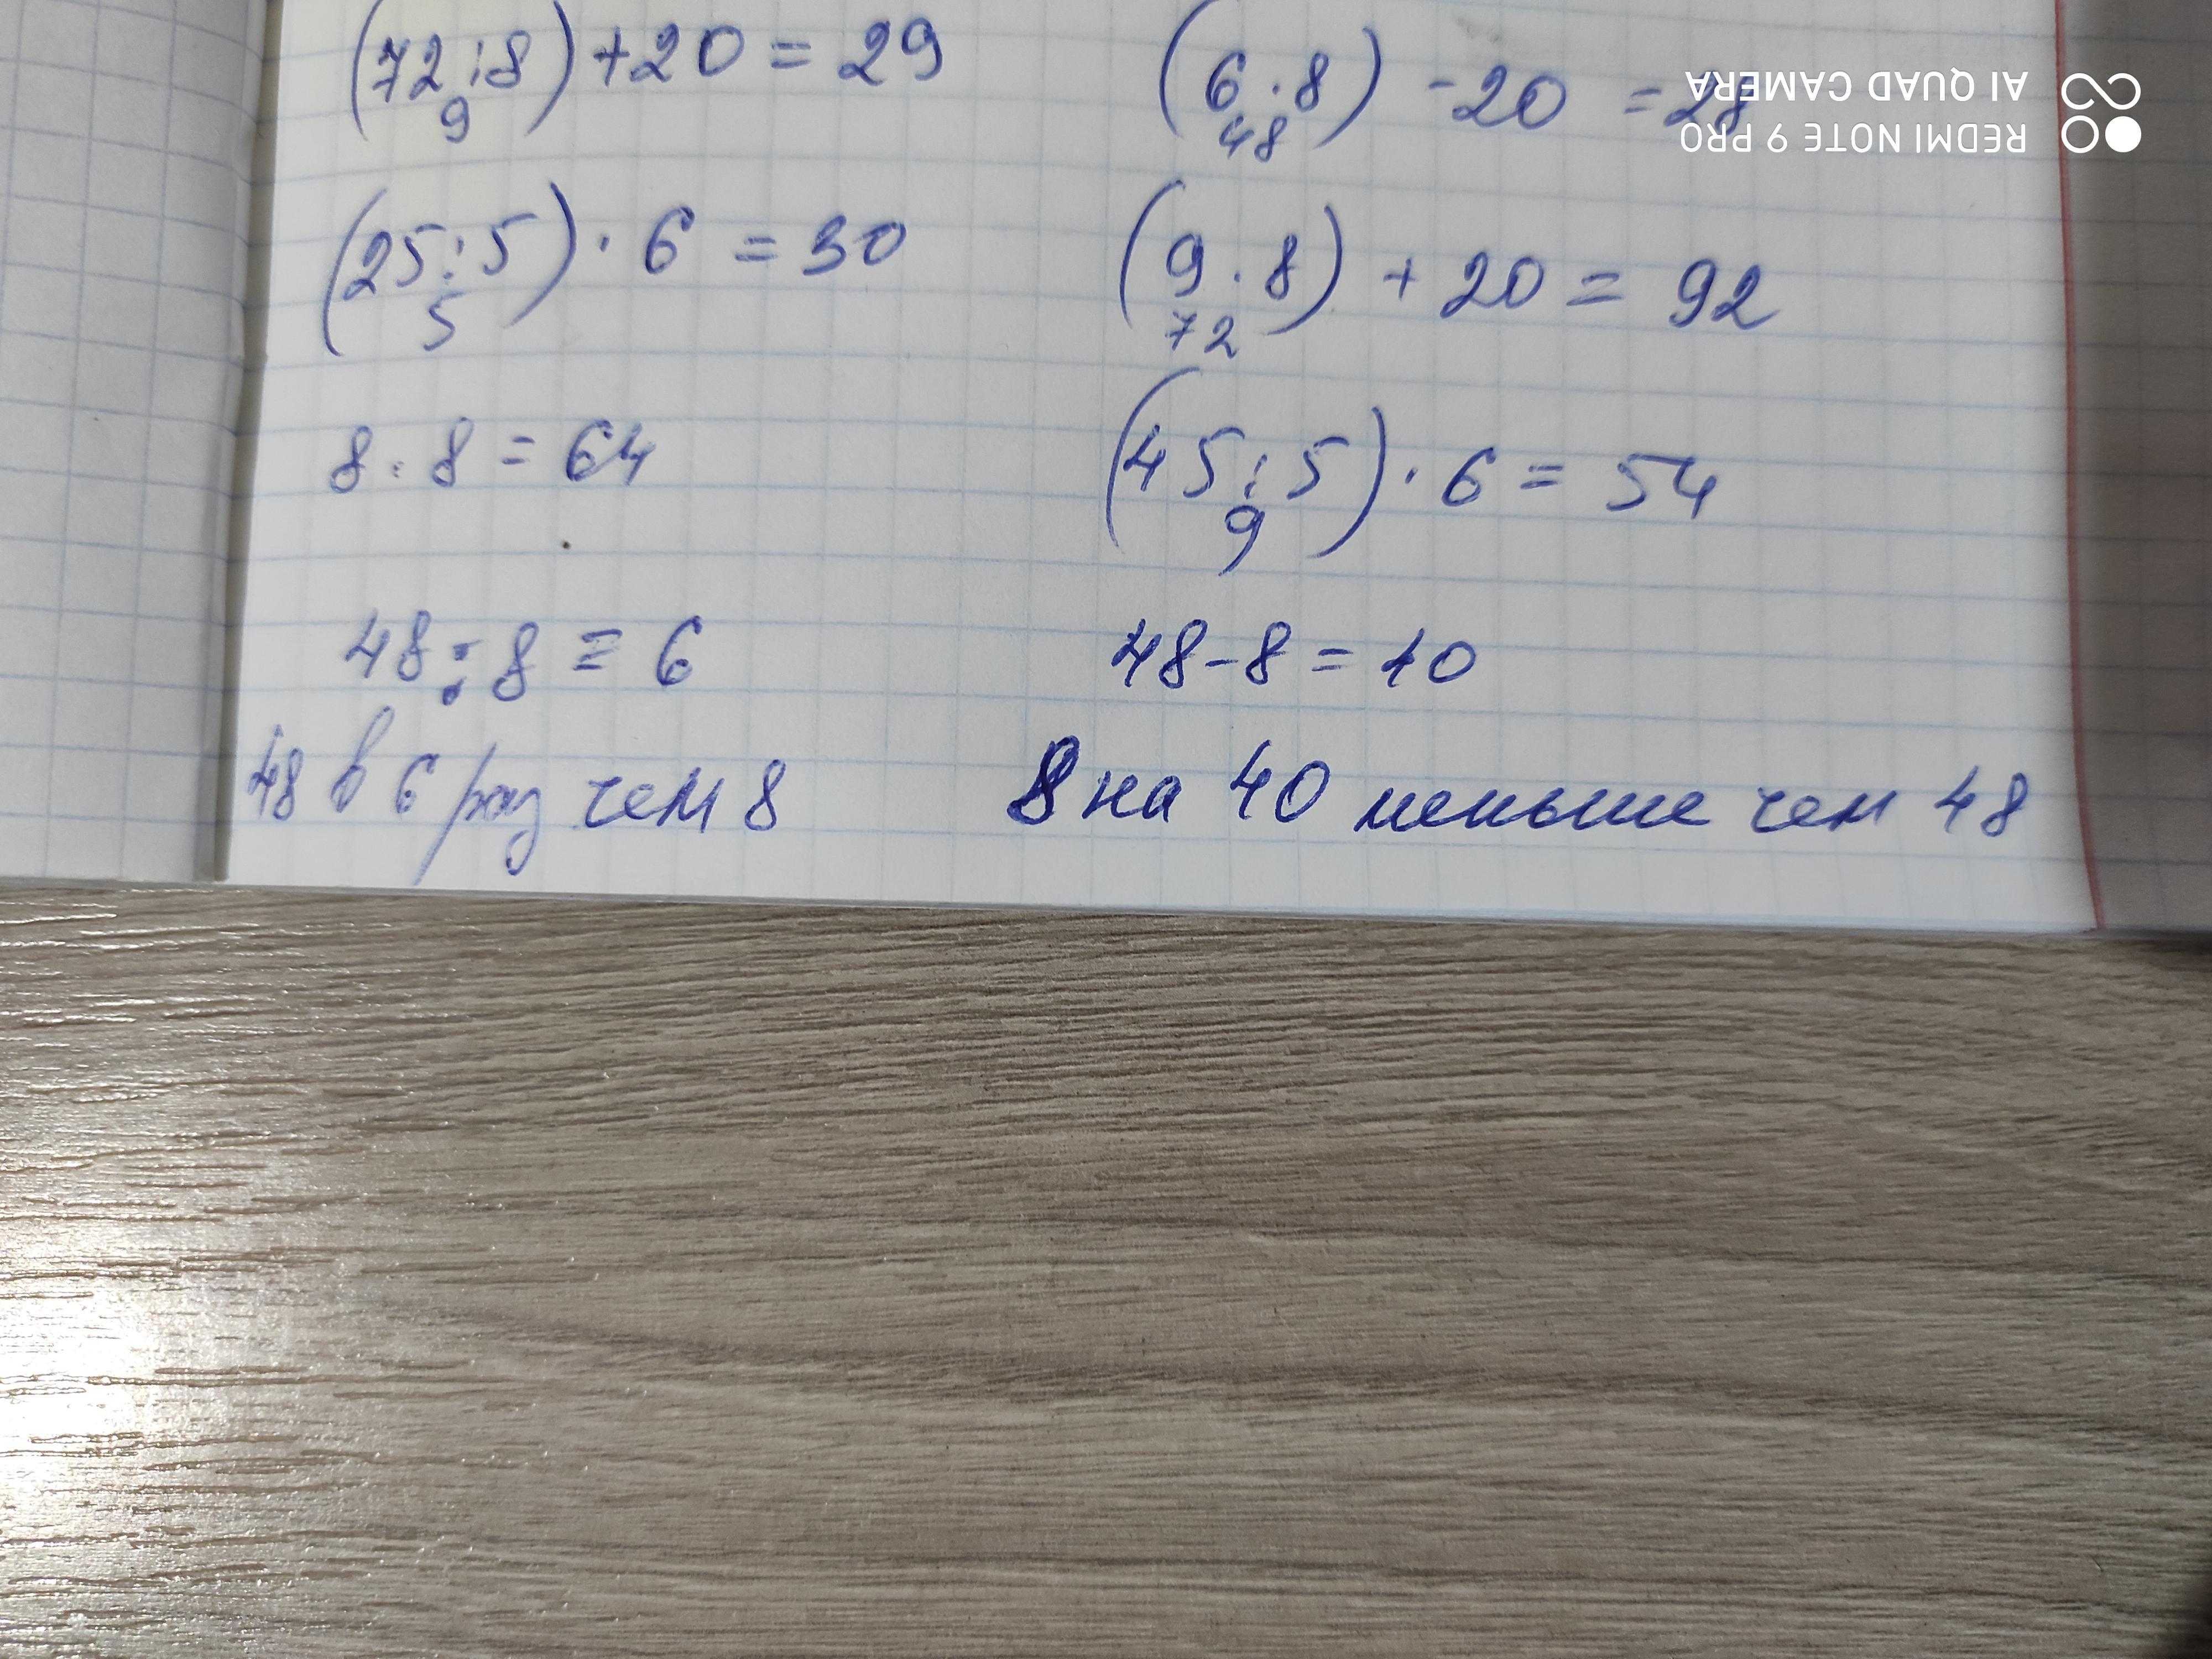 (72:8)+20=29
9
(6·8)-20=28
48
REDMI NOTE 9 PRO
AI QUAD CAMERA
(25:5)·6=30
5
(9·8)+20=92
72
8·8=64
(45:5)·6=54
9
48:8=6
48-8=40
48 в 6 раз чем 8
8 на 40 меньше чем 48